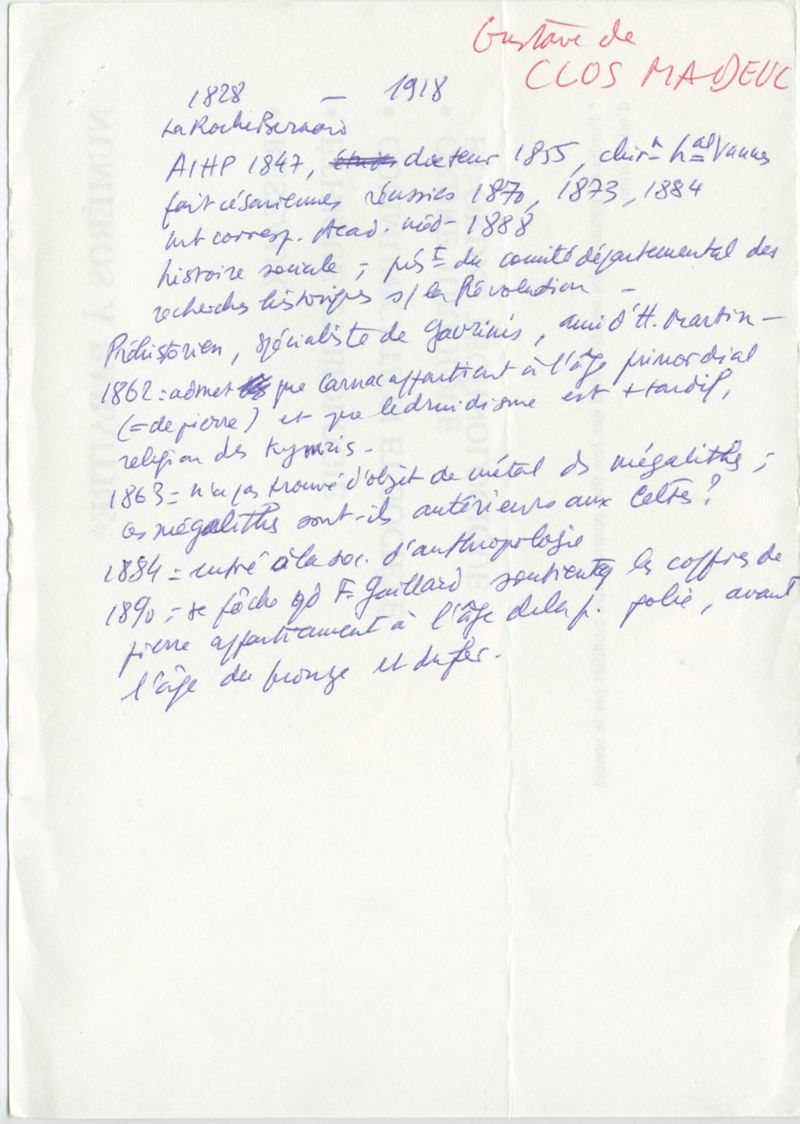 Gustave de
CLOS MADEUC
1828 — 1918
La Roche Bernard
AIHP 1847, docteur 1855, chirn hal Vannes
fait césariennes réussies 1870, 1873, 1884
mt corresp. Acad. méd – 1888
histoire sociale ; pést du comité départemental des
recherches historiques s/ la Révolution –
Préhistorien, spécialiste de gavrinis, ami d'H. Martin –
1862 = admet que Carnac appartient à l'âge primordial
(= de pierre) et que le druidisme est + tardif,
religion des Kymris –
1863 = n'a pas trouvé d'objet de métal ds mégaliths ;
ces mégaliths sont-ils antérieurs aux Celtes ?
1884 = entré à la soc. d'anthropologie
1890 = se fâche qd F. Gaillard soutient q les coffres de
pierre appartiennent à l'âge de la p. polie, avant
l'âge du bronze et du fer.